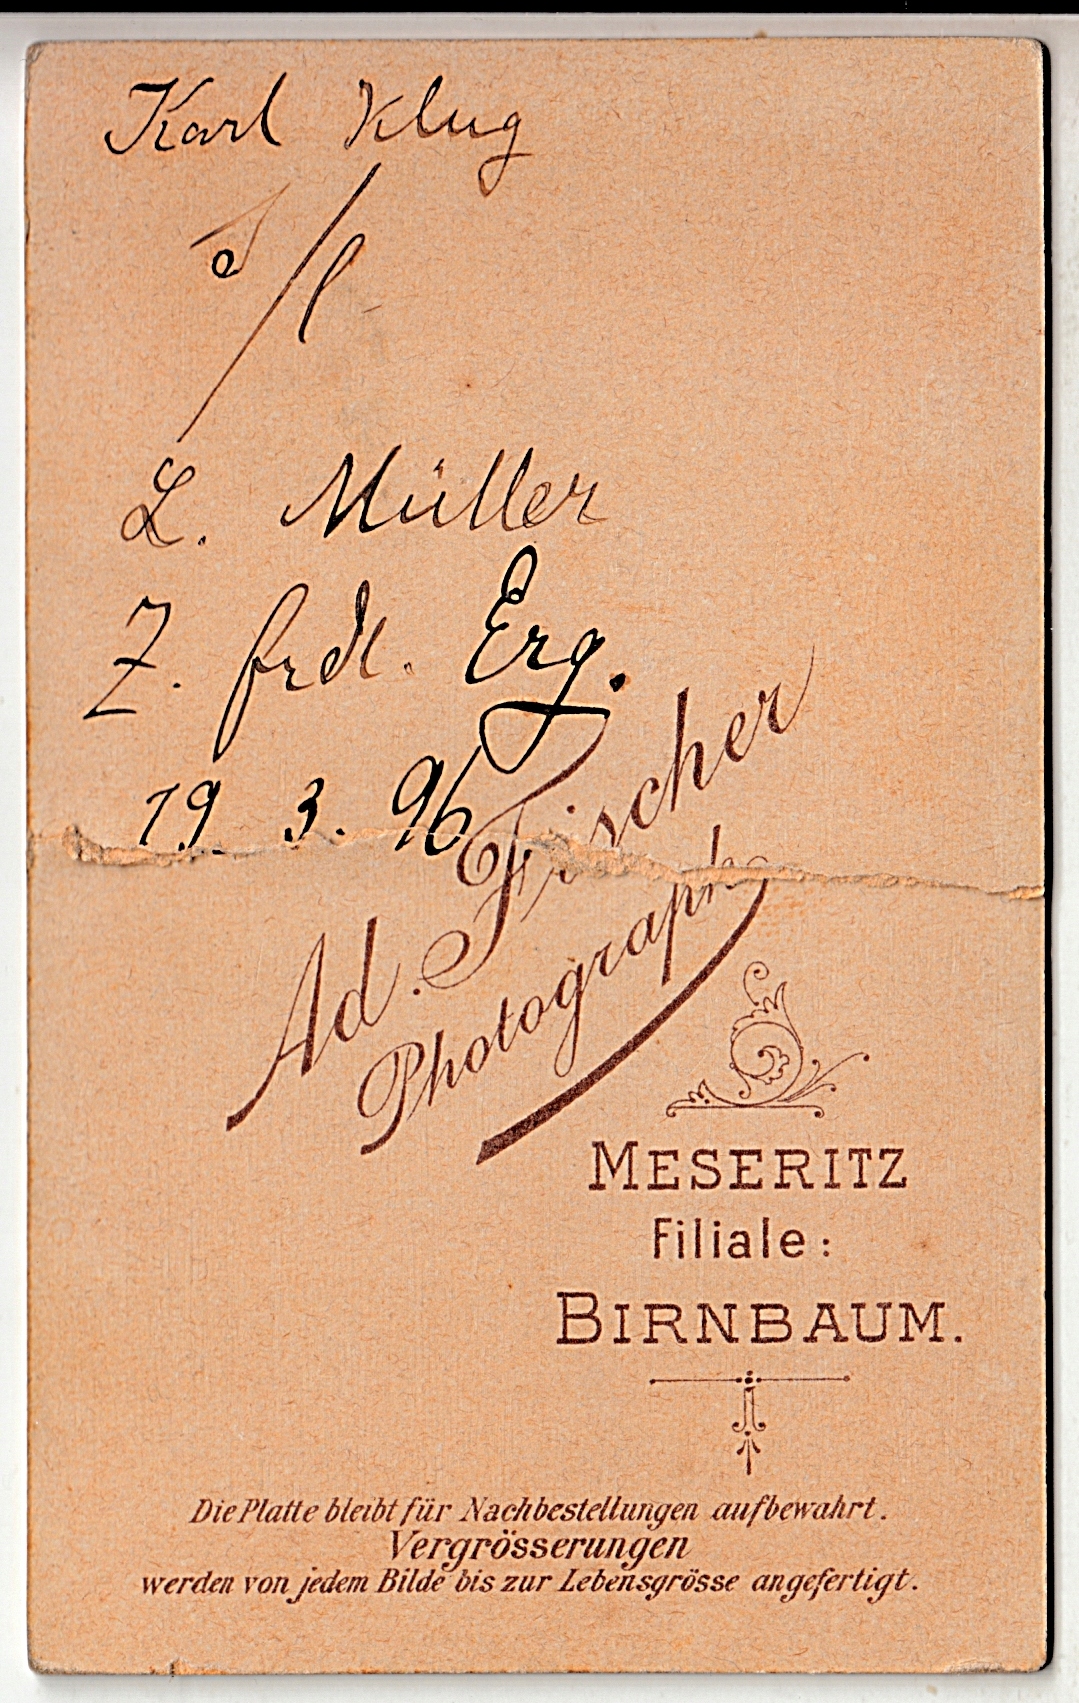 Karl Klug
L. Müller
Z. frdl. Erg.
19. 3. 96
Ad. Fischer
Photograph
MESERITZ
Filiale:
BIRNBAUM.
Die Platte bleibt für Nachbestellungen aufbewahrt.
Vergrösserungen
werden von jedem Bilde bis zur Lebensgrösse angefertigt.